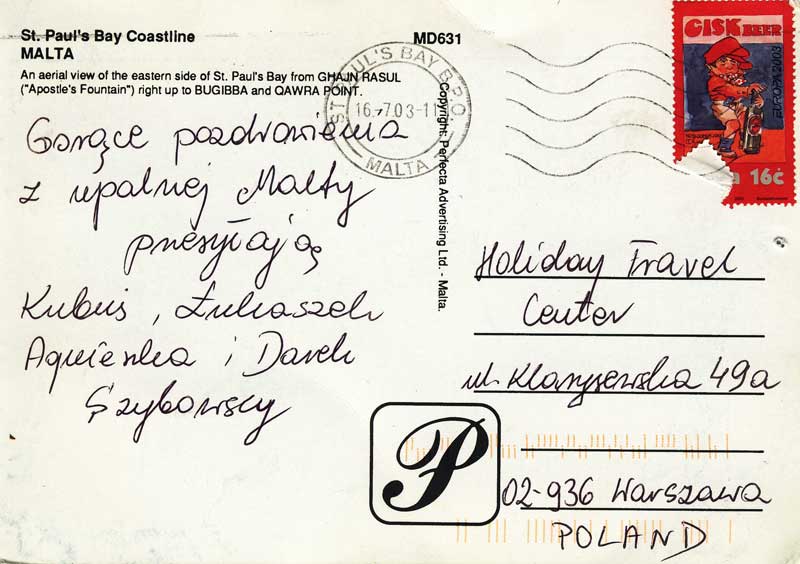 St. Paul's Bay Coastline
MALTA
MD631
An aerial view of the eastern side of St. Paul's Bay from GHAJN RASUL
("Apostle's Fountain") right up to BUGIBBA and QAWRA POINT.
Copyright: Perfecta Advertising Ltd. - Malta.
ST. PAUL'S BAY B.P.O.
16.-7.03-11
MALTA
CISK BEER
EUROPA 2003
16c
Gorące pozdrowienia
z upalnej Malty
przesyłają
Kubuś, Łukaszek
Agnieszka i Darek
Szybowscy
Holiday Travel
Center
ul. Klaryszewska 49a
02-936 Warszawa
POLAND
P